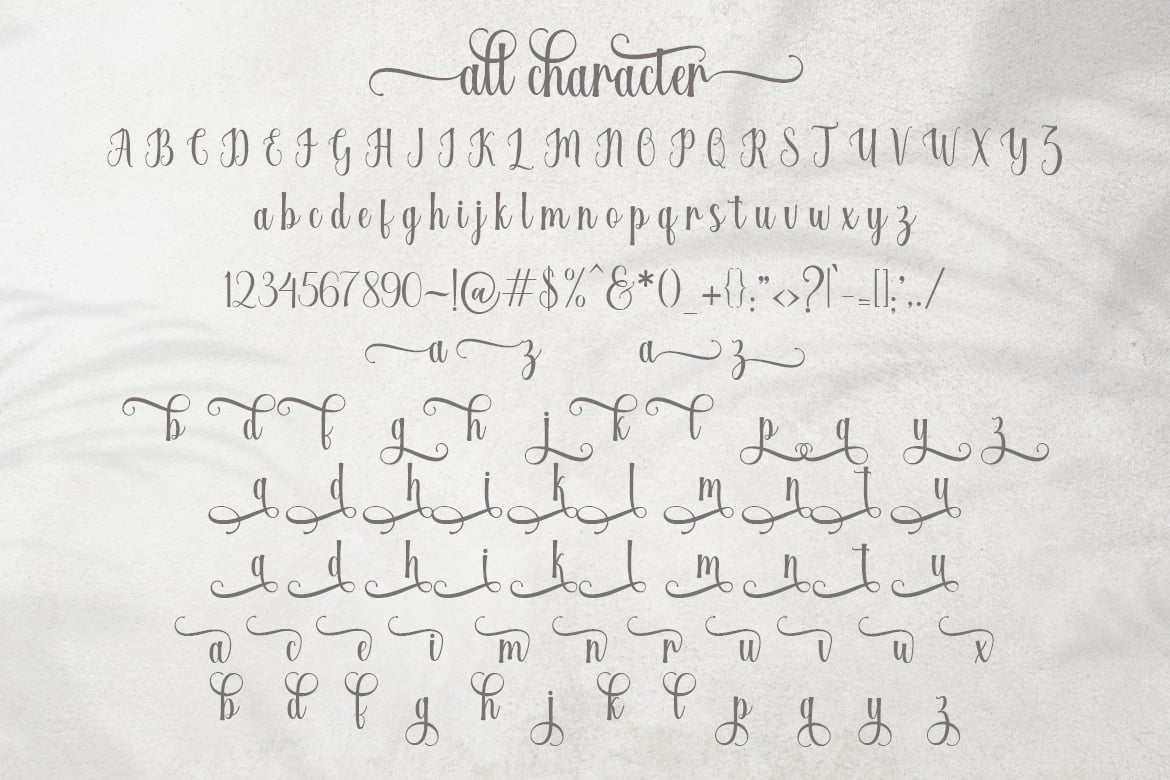 all character
A B C D E F G H I J K L M N O P Q R S T U V W X Y Z
a b c d e f g h i j k l m n o p q r s t u v w x y z
1234567890~!@#$%^&*()_+{}:"<>?|`-=[];',./
a z a z
b d f g h j k l p q y z
a d h i k l m n t u
a d h i k l m n t u
a c e i m n r u v w x
b d f g h j k l p q y z